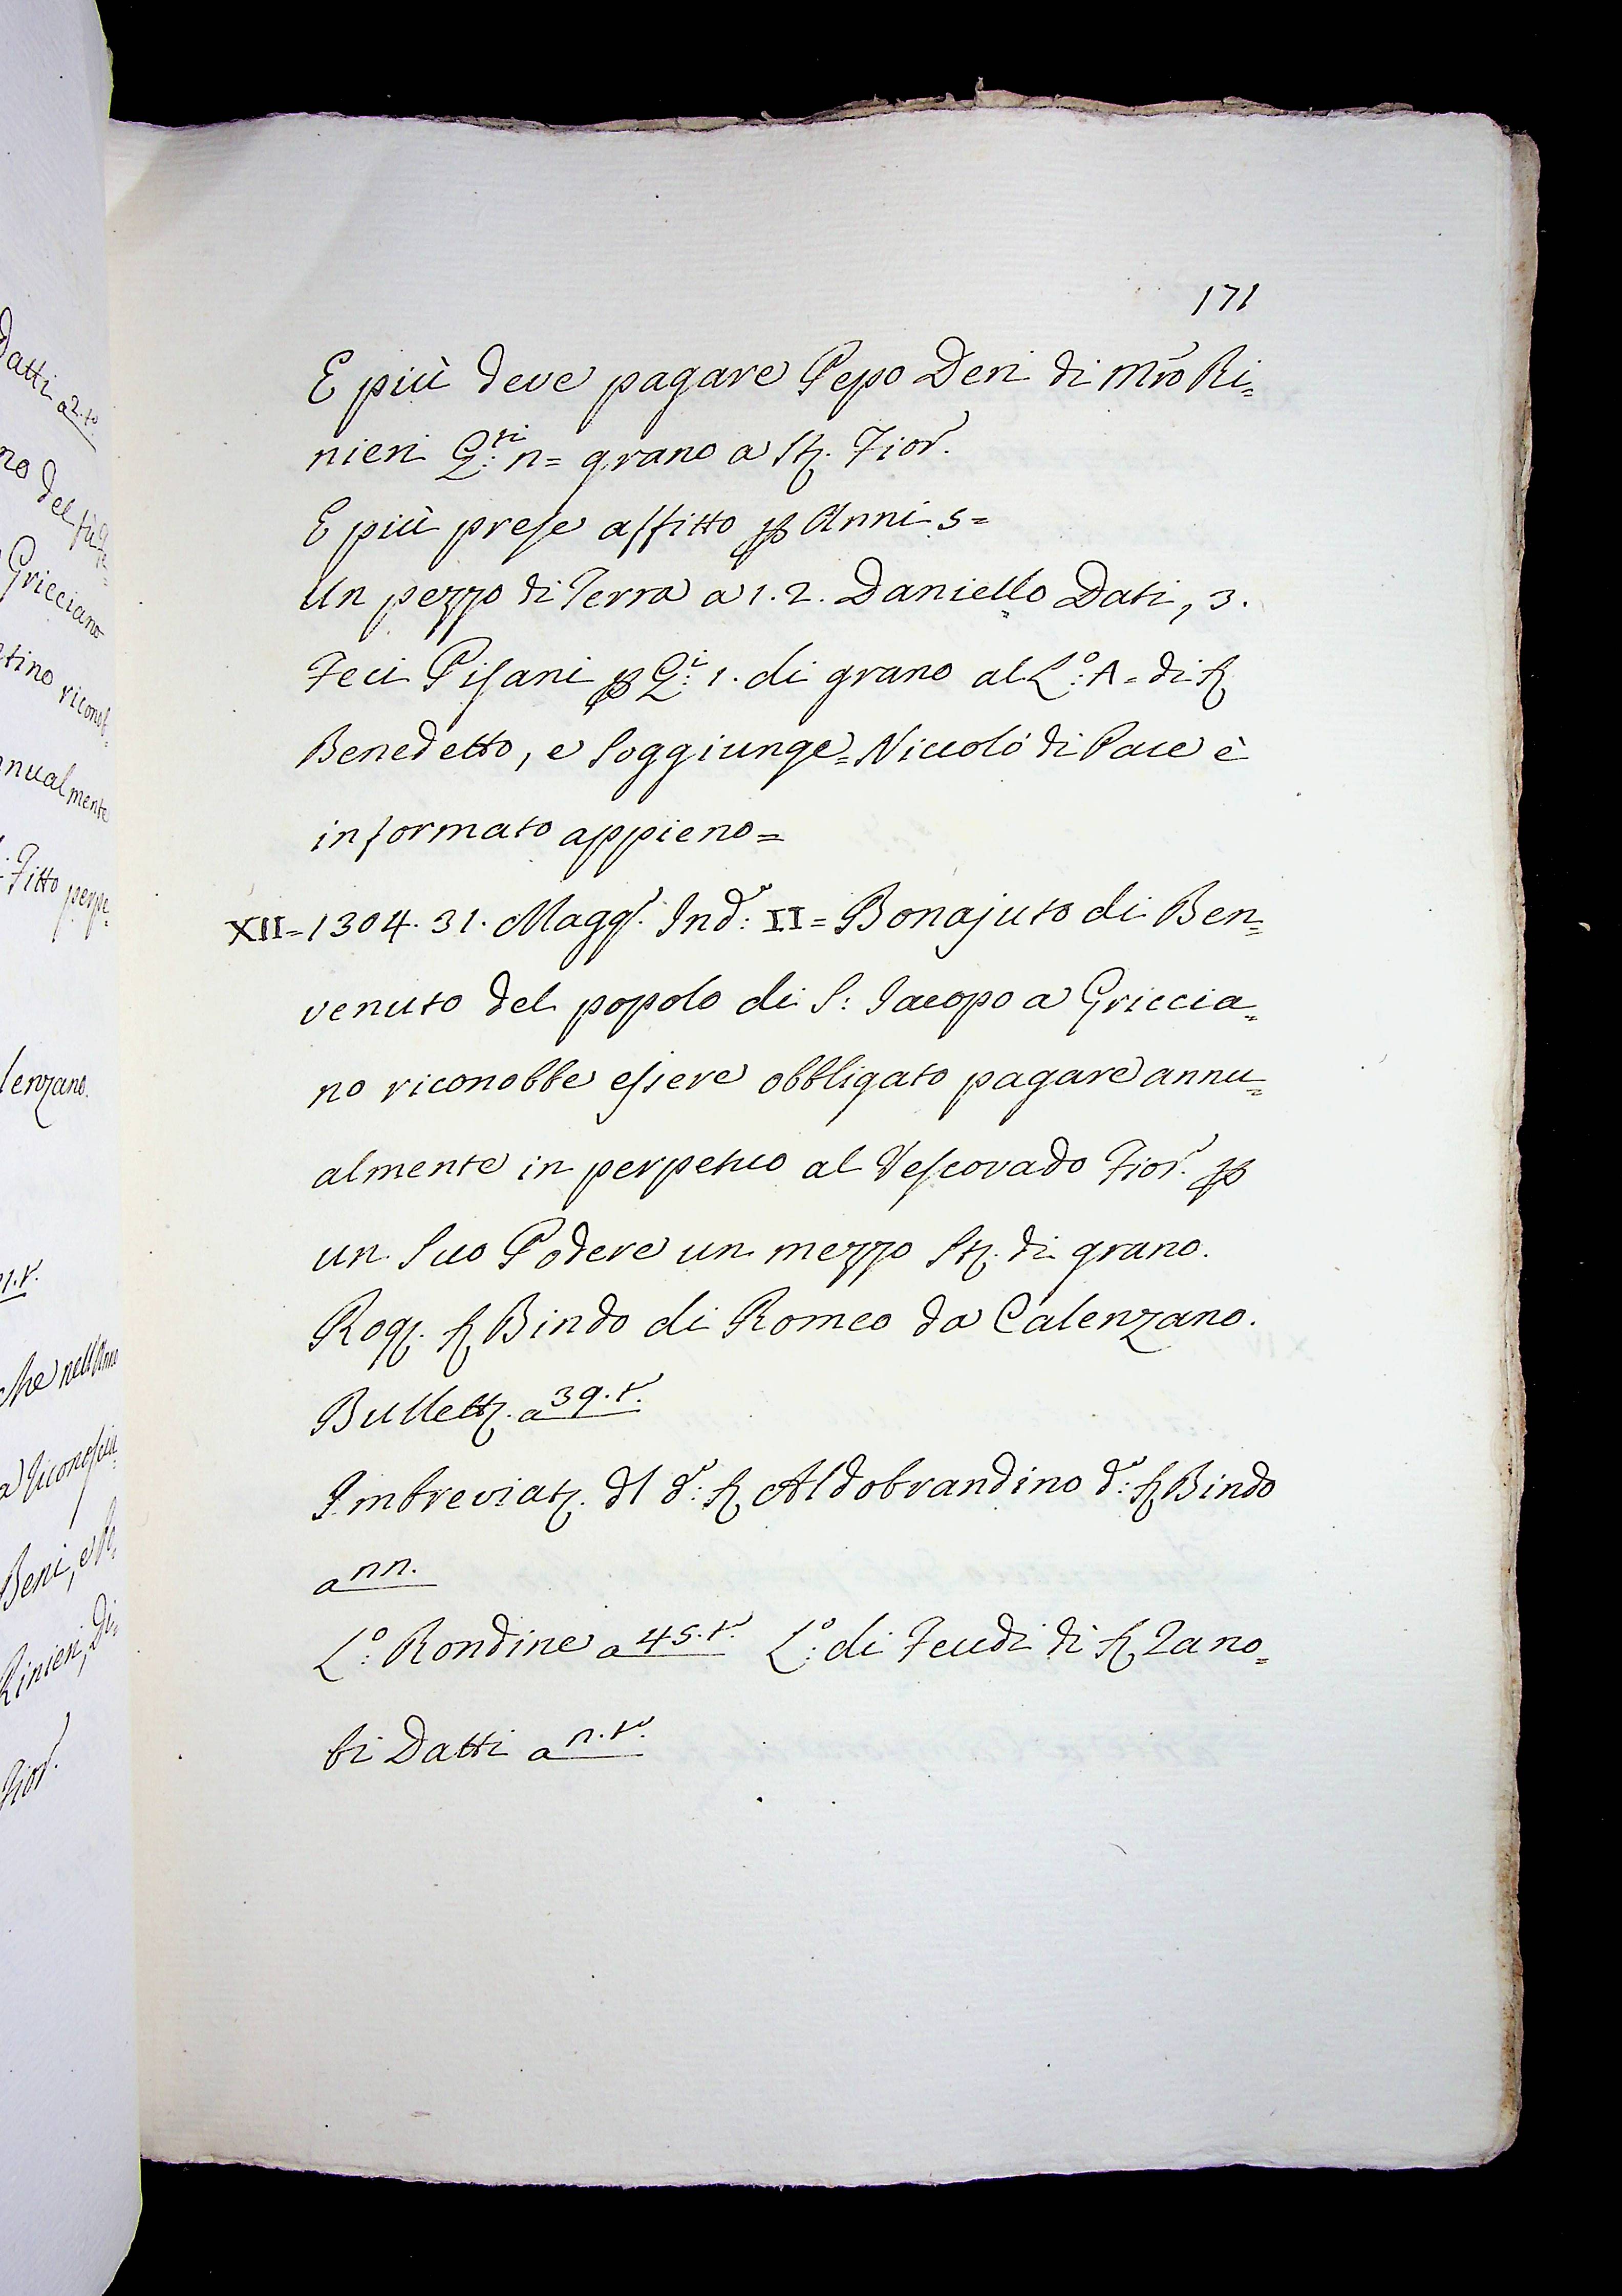 171
E più deve pagare Pepo Deri di Mrõ Ri=
nieri Q:ti n= grano a Stẓ. Fior.
E più prese affitto ꝑ Anni 5=
Un pezzo di Terra a 1. 2. Daniello Dati, 3.
Feci Pisani ꝑ Q:i 1. di grano al L:o A= di
Benedetto, e soggiunge= Niccolò di Pace è
informato appieno=
XII= 1304. 31. Magg. Ind: II= Bonajuto di Ben=
venuto del popolo di S: Iacopo a Griccia=
no riconobbe essere obbligato pagare annu=
almente in perpetuo al Vescovado Fior. ꝑ
un suo Podere un mezzo Stẓ. di grano.
Rog. Bindo di Romeo da Calenzano.
Bullett. a 39. t.
Imbreviat. dl d: Aldobrandino d: Bindo
a nn.
L:o Rondine a 45. t. L:o di Feudi di Zano=
bi Datti a n. t.
Datti a 2. to
no del
Gricciano
tino riconob=
nnualmente
Fitto perpe=
lenzano.
1. t.
che nell'Anno
Beni, e
Rinieri, Di=
Fior.